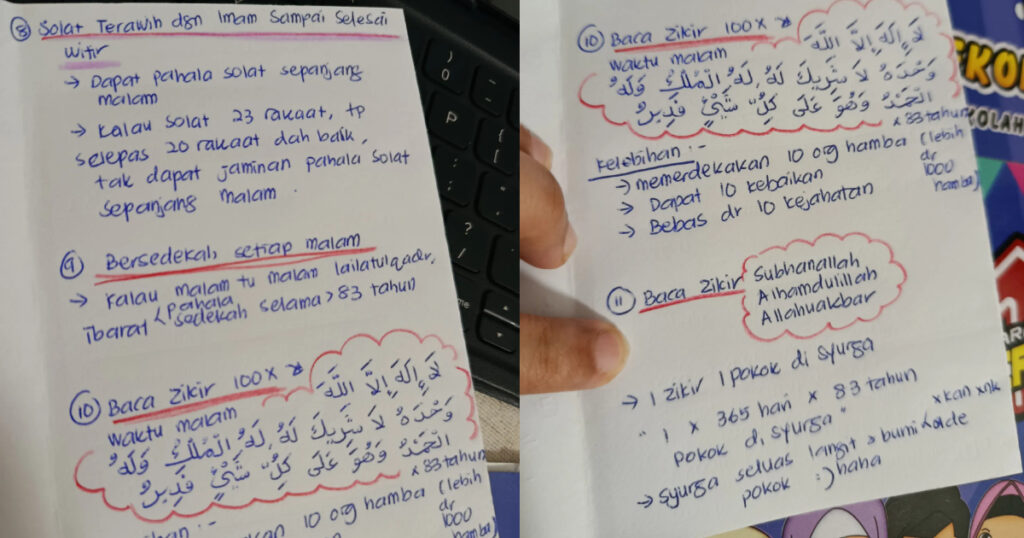 ⑧ Solat Terawih dgn Imam Sampai Selesai
Witir
→ Dapat pahala solat sepanjang
malam
→ Kalau solat 23 rakaat, tp
selepas 20 rakaat dah balik,
tak dapat jaminan pahala solat
sepanjang malam.
⑨ Bersedekah setiap malam
→ Kalau malam tu malam lailatulqadr,
ibarat <pahala sedekah selama > 83 tahun
⑩ Baca zikir 100x
waktu malam
لَا إِلَهَ إِلَّا اللَّهُ
وَحْدَهُ لَا شَرِيكَ لَهُ، لَهُ الْمُلْكُ وَلَهُ
الْحَمْدُ وَهُوَ عَلَى كُلِّ شَيْءٍ قَدِيرٌ
x 83 tahun
(lebih
dr
1000
hamba)
10 org hamba
⑩ Baca zikir 100x
waktu malam
لَا إِلَهَ إِلَّا اللَّهُ
وَحْدَهُ لَا شَرِيكَ لَهُ، لَهُ الْمُلْكُ وَلَهُ
الْحَمْدُ وَهُوَ عَلَى كُلِّ شَيْءٍ قَدِيرٌ
x 83 tahun
(lebih
dr
1000
hamba)
Kelebihan :-
→ memerdekakan 10 org hamba
→ Dapat 10 kebaikan
→ Bebas dr 10 kejahatan
⑪ Baca zikir
Subhanallah
Alhamdulillah
Allahuakbar
→ 1 zikir 1 pokok di syurga
" 1 x 365 hari x 83 tahun
pokok di syurga "
→ syurga seluas langit > bumi <
xkan xnk
ade
pokok :) haha
P
?
/
EKO